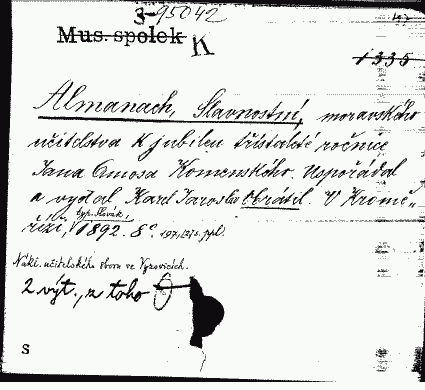 3-95042
Mus. spolek K
1335
Almanach, Slavnostní, moravského
učitelstva k jubileu třístaleté ročnice
Jana Amosa Komenského. Uspořádal
a vydal Karel Jaroslav Obrátil. V Kromě-
říži, typ. Slovák, 1892. 8°.
Nákl. učitelského sboru ve Vyzovicích.
2 výt., z toho
S